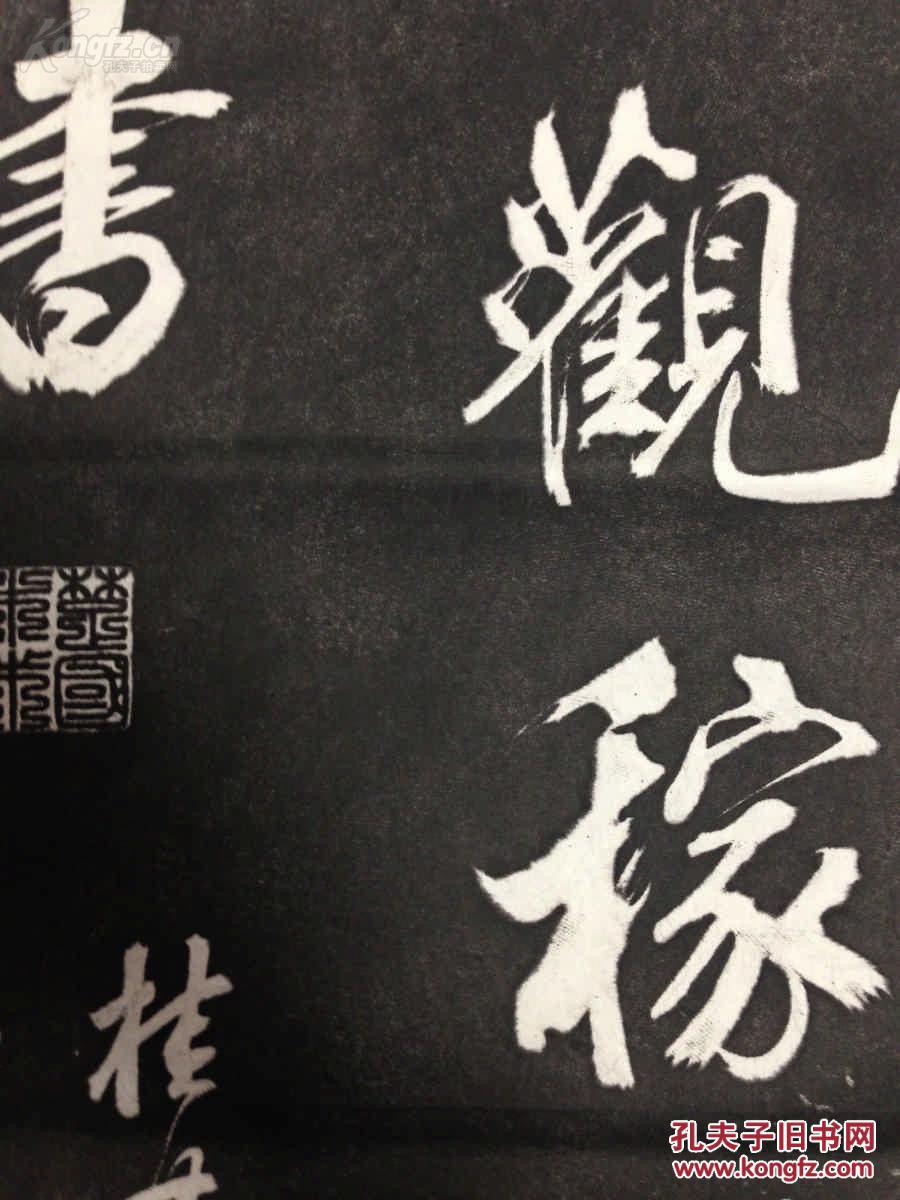 Kongfz.cn
孔夫子拍卖网
觀稼
書
桂
孔夫子旧书网
www.kongfz.com